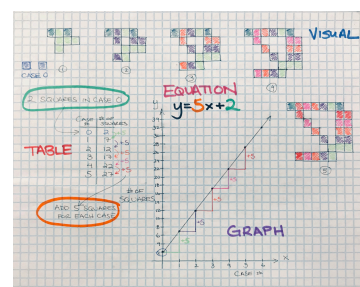 VISUAL
CASE 0
1
2
3
4
5
2 SQUARES IN CASE 0
EQUATION
y=5x+2
TABLE
CASE # # OF SQUARES
0 2
1 7 +5
2 12 +5
3 17 +5
4 22 +5
5 27 +5
ADD 5 SQUARES
FOR EACH CASE
# OF
SQUARES
y
+5
+5
+5
+5
GRAPH
0 1 2 3 4 5 6
x
CASE #